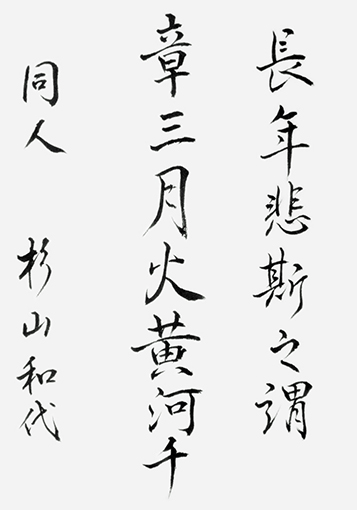 長年悲斯之謂
章三月火黄河千
同人 杉山和代